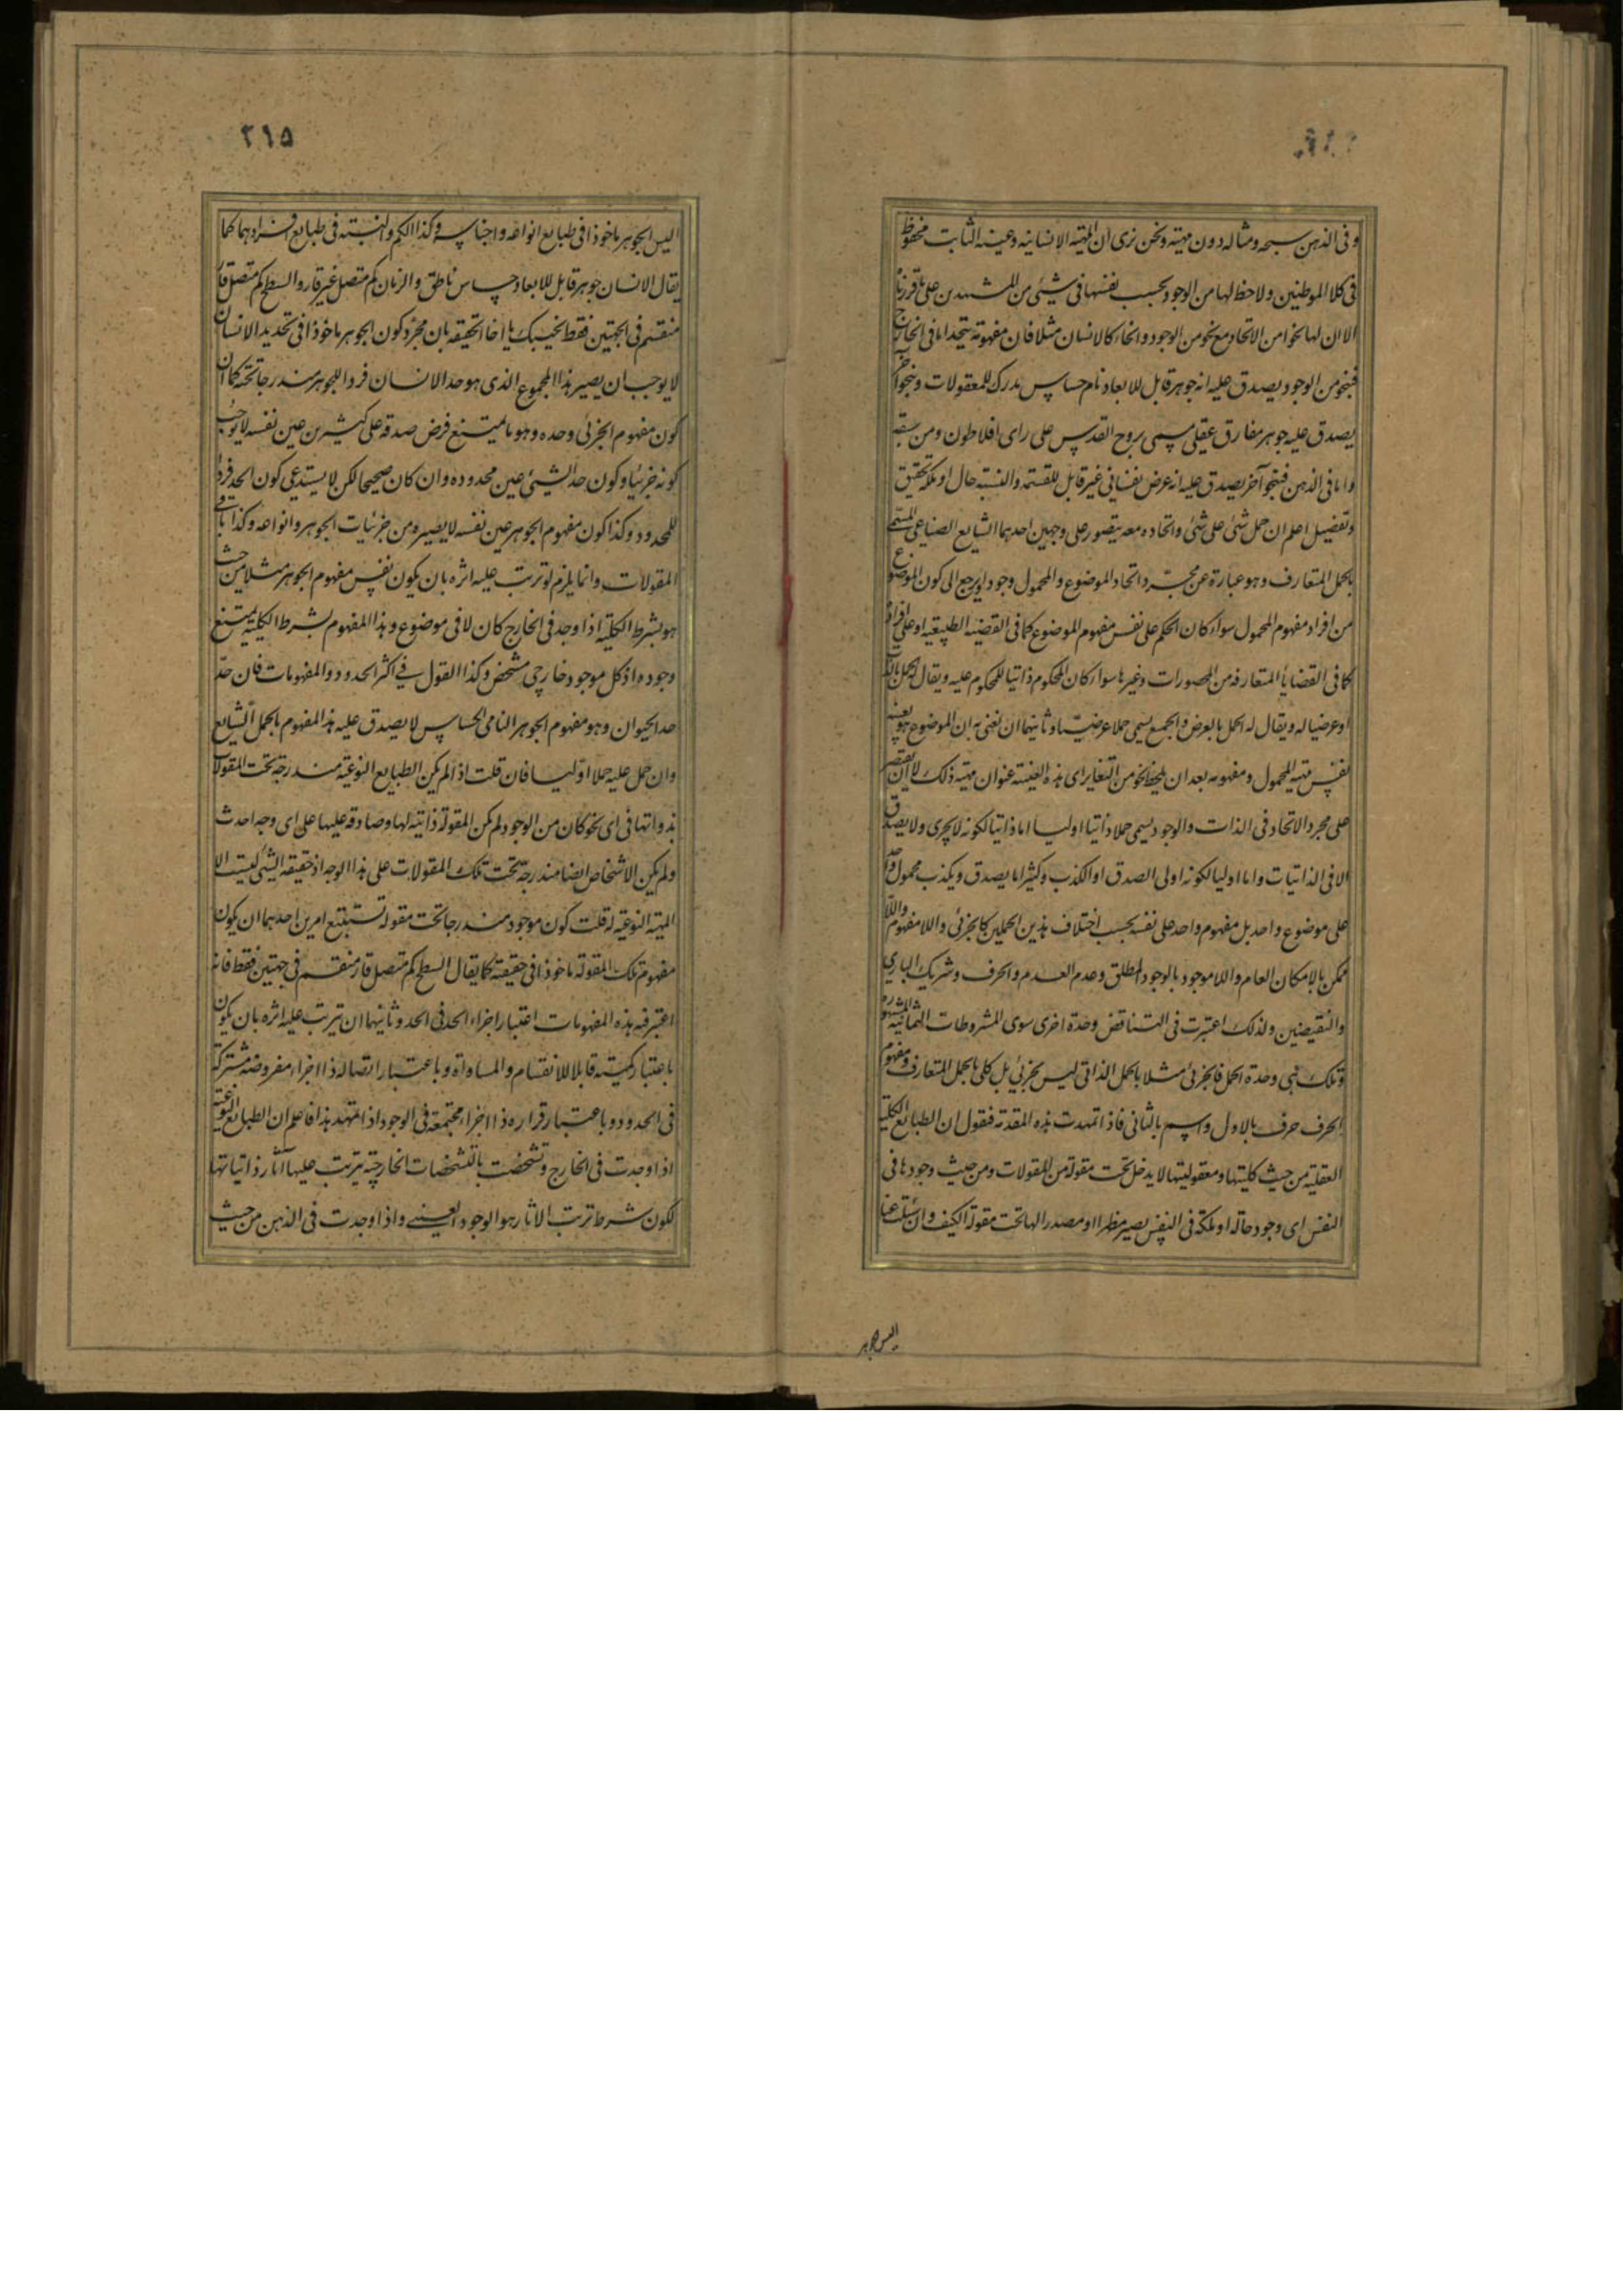 وفى الذهن شبحه ومثاله دون مهيته ونحن نرى ان المهية الانسانية وعينه الثابت محفوظ
فى كلا الموطنين ولا حظ لها من الوجود بحسب نفسها فى شيئى من المشهدين على ما قررناه
الا ان لها نحوا من الاتحاد مع نحو من الوجود وانحاء كالانسان مثلا فان مفهومه يتحد اما فى الخارج
فبنحو من الوجود يصدق عليه انه جوهر قابل للابعاد نام حساس مدرك للمعقولات وبنحو آخر
يصدق عليه جوهر مفارق عقلى مسمى بروح القدس على راى افلاطون ومن سبقه
واما فى الذهن فبنحو آخر يصدق عليه انه عرض نفسانى غير قابل للقسمة والنسبة حال او ملكة تحقيق
وتفضيل اعلم ان حمل شئى على شئى واتحاده معه يتصور على وجهين احدهما الشايع الصناعى المسمى
بالحمل المتعارف وهو عبارة عن مجرّد اتحاد الموضوع والمحمول وجودا ويرجع الى كون الموضوع
من افراد مفهوم المحمول سواء كان الحكم على نفس مفهوم الموضوع كما فى القضية الطبيعية او على افراده
كما فى القضايا المتعارفه من المحصورات وغيرها سواء كان المحكوم ذاتيا للمحكوم عليه ويقال له الحمل بالذات
او عرضيا له ويقال له الحمل بالعرض والجميع يسمى حملا عرضيّا وثانيهما ان نعنى به ان الموضوع هو بعينه
نفس مهية المحمول ومفهومه بعد ان يلحظ نحو من التغاير اى هذه العينية عنوان مهية ذلك لا ان يقتصر
على مجرد الاتحاد فى الذات والوجود يسمى حملا ذاتيا اوليا اما ذاتيا لكونه لا يجرى ولا يصدق
الا فى الذاتيات واما اوليا لكونه اولى الصدق او الكذب وكثيرا ما يصدق ويكذب محمول واحد
على موضوع واحد بل مفهوم واحد على نفسه بحسب اختلاف هذين الحملين كالجزئى واللا مفهوم واللا
ممكن بالامكان العام واللا موجود بالوجود المطلق وعدم العدم والحرف وشريك البارى
والنقيضين ولذلك اعتبرت فى التناقض وحدة اخرى سوى المشروطات الثمانية المشهورة
وتلك هى وحدة الحمل فالجزئى مثلا بالحمل الذاتى ليس بجزئى بل كلى بالحمل المتعارف ومفهوم
الحرف حرف بالاول واسم بالثانى فاذا تمهدت هذه المقدمة فنقول ان الطبايع الكلية
العقلية من حيث كليتها ومعقوليتها لا يدخل تحت مقولة من المقولات ومن حيث وجودها فى
النفس اى وجود حالة او ملكة فى النفس يصير مظهرا او مصدرا لها تحت مقولة الكيف وان سئلت عنا
اليس الجوهر
٢١٥
اليس الجوهر ماخوذا فى طبايع انواعه واجناسه وكذا الكم والنسبة فى طبايع افرادهما كما
يقال الانسان جوهر قابل للابعاد حساس ناطق والزمان كم متصل غير قار والسطح كم متصل قار
منقسم فى الجهتين فقط نجيبك يا اخا الحقيقه بان مجرّد كون الجوهر ماخوذا فى تحديد الانسان
لا يوجب ان يصير هذا المجموع الذى هو حد الانسان فردا للجوهر مندرجا تحته كما ان
كون مفهوم الجزئى وحده وهو ما يمتنع فرض صدقه على كثيرين عين نفسه لا يوجب
كونه جزئيا وكون حد الشيئى عين محدوده وان كان صحيحا لكن لا يستدعى كون الحد فردا
للمحدود وكذا كون مفهوم الجوهر عين نفسه لا يصيره من جزئيات الجوهر وانواعه وكذا باقى
المقولات وانما يلزم لو ترتب عليه اثره بان يكون نفس مفهوم الجوهر مثلا من حيث
هو بشرط الكلية اذا وجد فى الخارج كان لا فى موضوع وهذا المفهوم بشرط الكلية يمتنع
وجوده اذ كل موجود خارجى مشخص وكذا القول فى اكثر الحدود والمفهومات فان حدّ
حد الحيوان وهو مفهوم الجوهر النامى الحساس لا يصدق عليه هذا المفهوم بالحمل الشايع
وان حمل عليه حملا اوّليا فان قلت اذا لم يكن الطبايع النوعية مندرجة تحت المقولات
بذواتها فى اى نحو كان من الوجود لم يكن المقولة ذاتية لها وصادقه عليها على اى وجه احدث
ولم يكن الاشخاص ايضا مندرجة تحت تلك المقولات على هذا الوجه اذ حقيقة الشئى ليست الا
المهية النوعية له قلت كون موجود مندرجا تحت مقولة تستتبع امرين احدهما ان يكون
مفهوم تلك المقولة ماخوذا فى حقيقته كما يقال السطح كم متصل قار منقسم فى جهتين فقط فانه
اعتبر فيه هذه المفهومات اعتبار اجزاء الحد فى الحد وثانيهما ان يترتب عليه اثره بان يكون
باعتبار كميته قابلا للانقسام والمساواة وباعتبار اتصاله ذا اجزاء مفروضه مشتركة
فى الحدود وباعتبار قراره ذا اجزاء مجتمعة فى الوجود اذا تمهد هذا فاعلم ان الطبايع النوعية
اذا وجدت فى الخارج وتشخصت بالتشخصات الخارجية يترتب عليها آثار ذاتياتها
لكون شرط ترتب الاثار هو الوجود العينى واذا وجدت فى الذهن من حيث